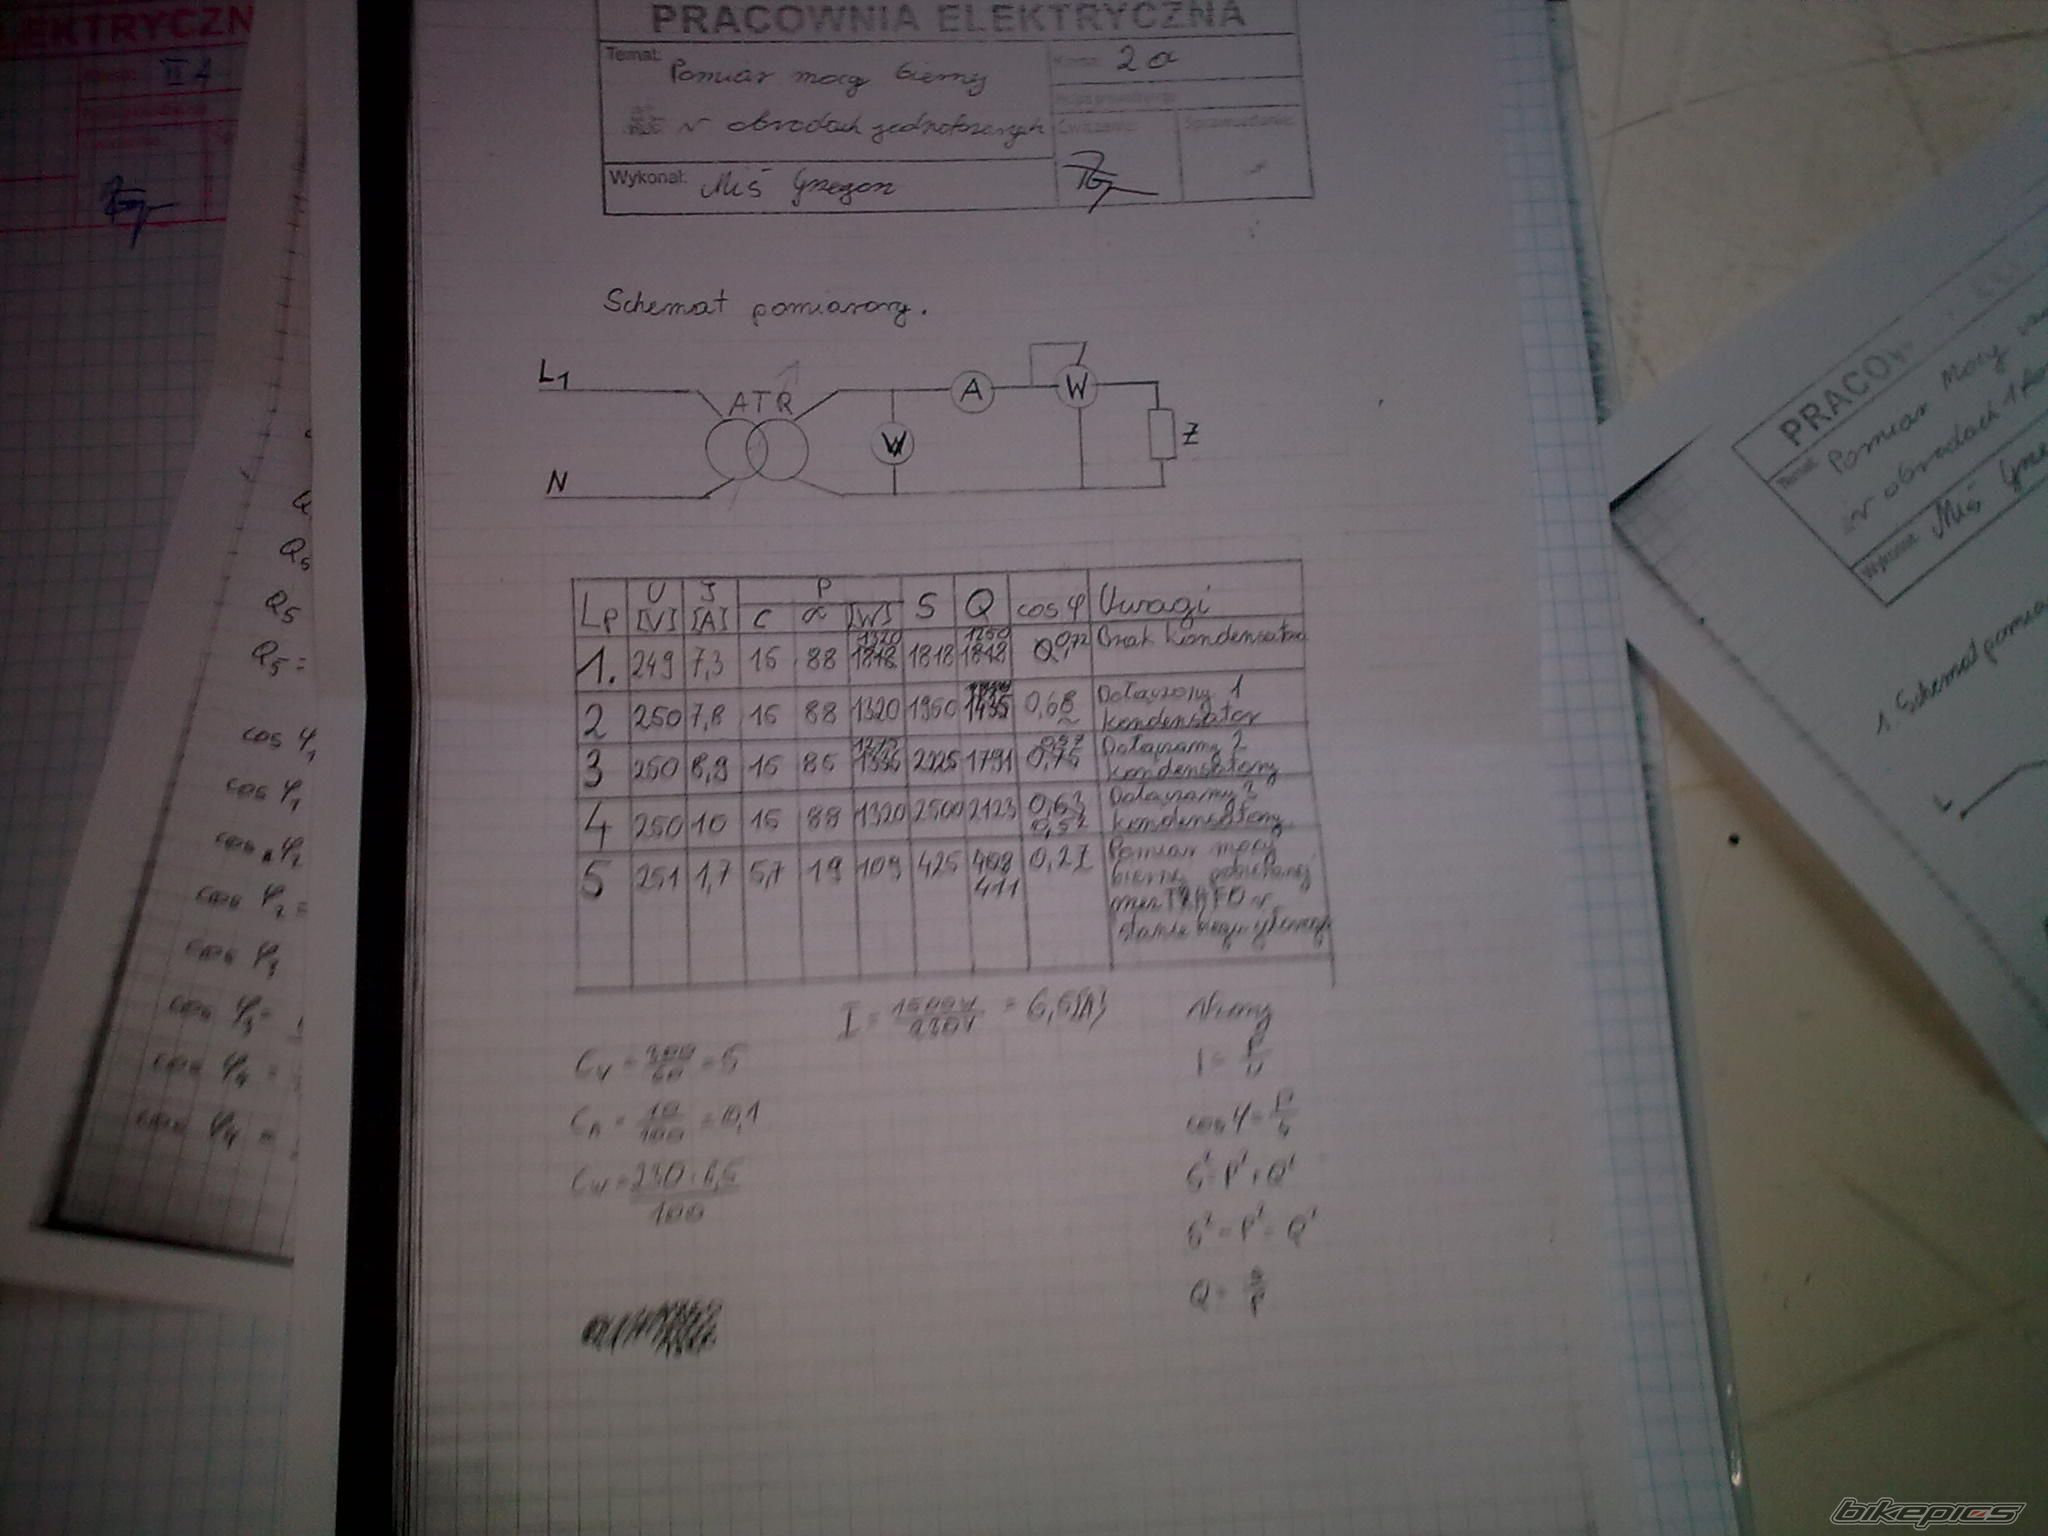 PRACOWNIA ELEKTRYCZNA
Temat: Pomiar mocy biernej
2a
w obwodach jednofazowych
Ćwiczenie: Sprawozdanie:
Wykonał: Miś Grzegorz
Schemat pomiarowy.
L1
ATR
A
W
V
Z
N
Lp U [V] I [A] P S Q cos φ Uwagi
C α [W]
1. 249 7,3 15 88 1320 1818 1818 1250 1818 0,72 Brak kondensatora
2 250 7,8 15 88 1320 1950 1435 0,68 Dołączony 1 kondensator
3 250 8,9 15 85 1275 1335 2225 1791 0,57 0,75 Dołączamy 2 kondensatory
4 250 10 15 88 1320 2500 2123 0,63 0,52 Dołączamy 3 kondensatory
5 251 1,7 5,7 19 109 425 408 411 0,27 Pomiar mocy biernej pobieranej TRAFO w stanie
I = 1500W / 230V = 6,5[A]
Wzory
Cv = 300 / 60 = 5
I = P / U
CA = 10 / 100 = 0,1
cos φ = P / S
Cw = 230 · 6,5 / 100
S² = P² + Q²
S² - P² = Q²
Q = S / P
EKTRYCZN
Q5
Q5
Q5 =
cos φ1
cos φ1
cos φ2
cos φ2 =
cos φ3
cos φ3 =
cos φ4 =
cos φ4 =
PRACOW
Temat: Pomiar Mocy
w obwodach 1
Wykonał: Miś Grze
1. Schemat pomia
L
bikepics